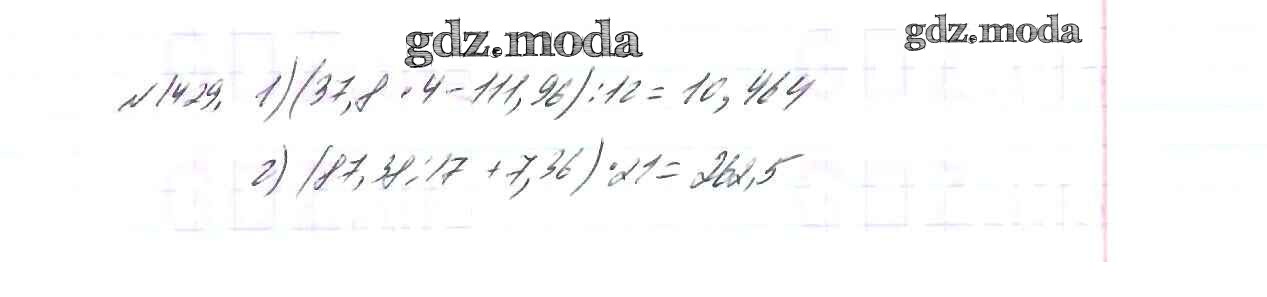 gdz.moda gdz.moda
№1429. 1) (37,8 · 4 - 111,96) : 12 = 10,464
2) (87,38 : 17 + 7,36) · 21 = 262,5